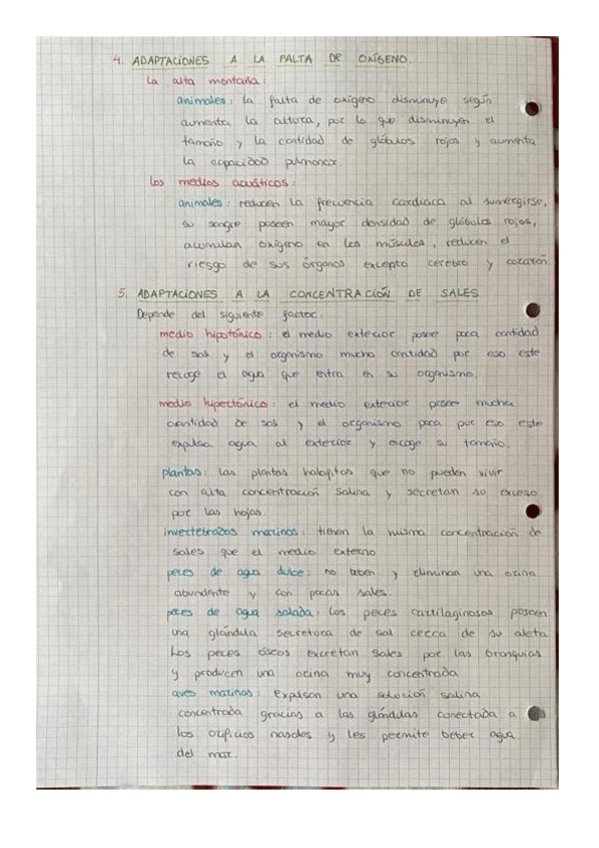 4. ADAPTACIONES A LA FALTA DE OXÍGENO.
La alta montaña:
animales: la falta de oxígeno disminuye según
aumenta la altura, por lo que disminuyen el
tamaño y la cantidad de glóbulos rojos y aumenta
la capacidad pulmonar.
Los medios acuáticos:
animales: reducen la frecuencia cardiaca al sumergirse,
su sangre poseen mayor densidad de glóbulos rojos,
acumulan oxígeno en los músculos, reducen el
riesgo de sus órganos excepto cerebro y corazón
5. ADAPTACIONES A LA CONCENTRACIÓN DE SALES
Depende del siguiente factor:
medio hipotónico: el medio exterior posee poca cantidad
de sas y el organismo mucha cantidad por eso este
recoge el agua que entra en su organismo.
medio hipertónico: el medio exterior posee mucha
cantidad de sas y el organismo poca por eso este
expulsa agua al exterior y encoge su tamaño.
plantas: las plantas halofitas que no pueden vivir
con alta concentración salina y secretan su exceso
por las hojas.
invertebrados marinos: tienen la misma concentración de
sales que el medio externo
peces de agua dulce: no beben y eliminan una orina
abundante y con pocas sales.
peces de agua salada: Los peces cartilaginosos poseen
una glándula secretora de sal cerca de su aleta
Los peces óseos excretan sales por las branquias
y producen una orina muy concentrada
aves marinas: expulsan una solución salina
concentrada gracias a las glándulas conectada a
los orificios nasales y les permite beber agua
del mar.